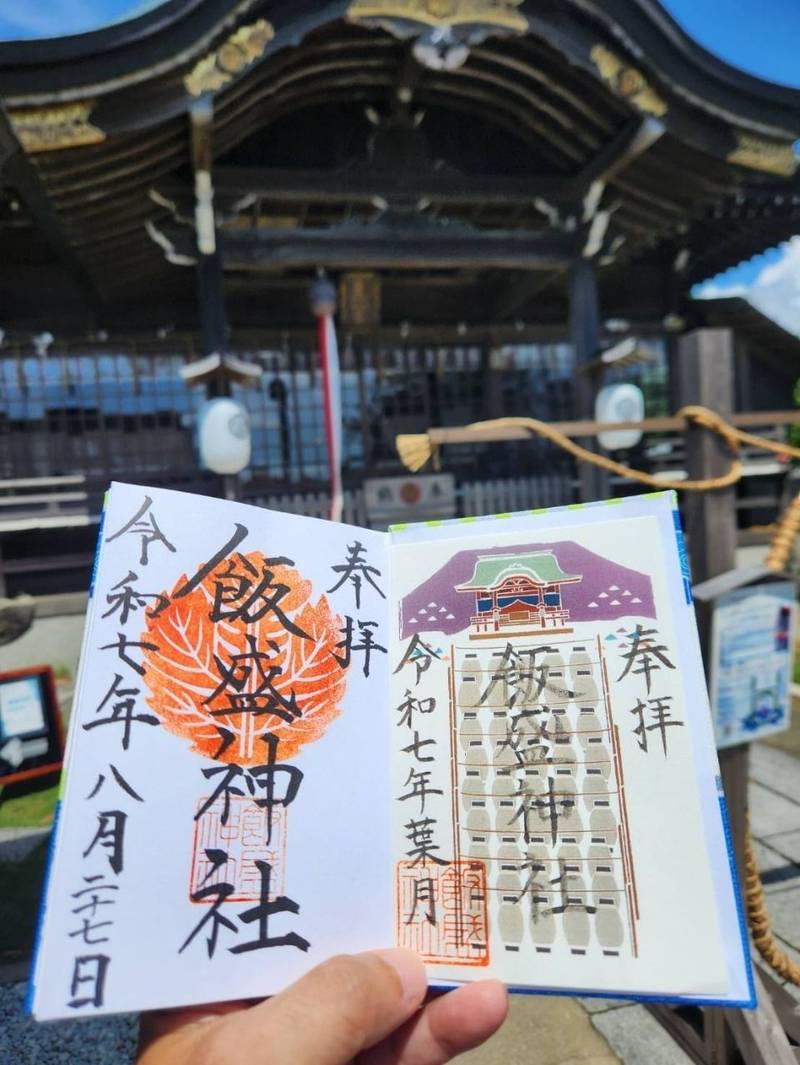 奉拝
飯盛神社
令和七年八月二十七日
奉拝
飯盛神社
令和七年葉月